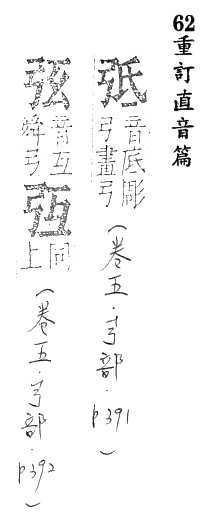 62重訂直音篇
弤
音底彫
弓畫弓
（卷五．弓部．p391）
音互
舜弓
同
上
（卷五．弓部．p392）